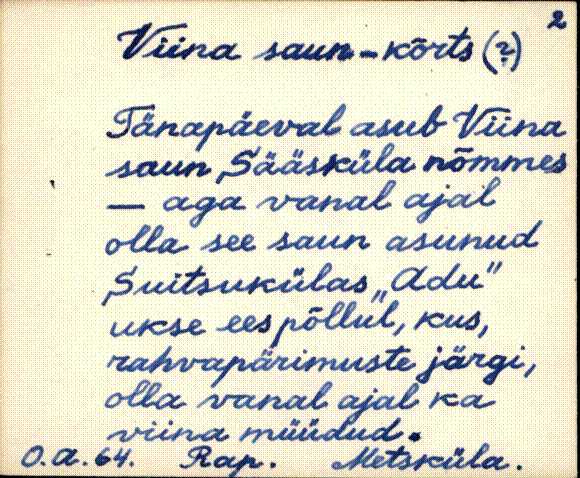 2
Viina saun - kõrts (?)
Tänapäeval asub Viina
saun Sääsküla nõmmes
— aga vanal ajal
olla see saun asunud
Suitsukülas „Adu"
ukse ees põllul, kus,
rahvapärimuste järgi,
olla vanal ajal ka
viina müüdud.
O.A.64. Rap. Metsküla.